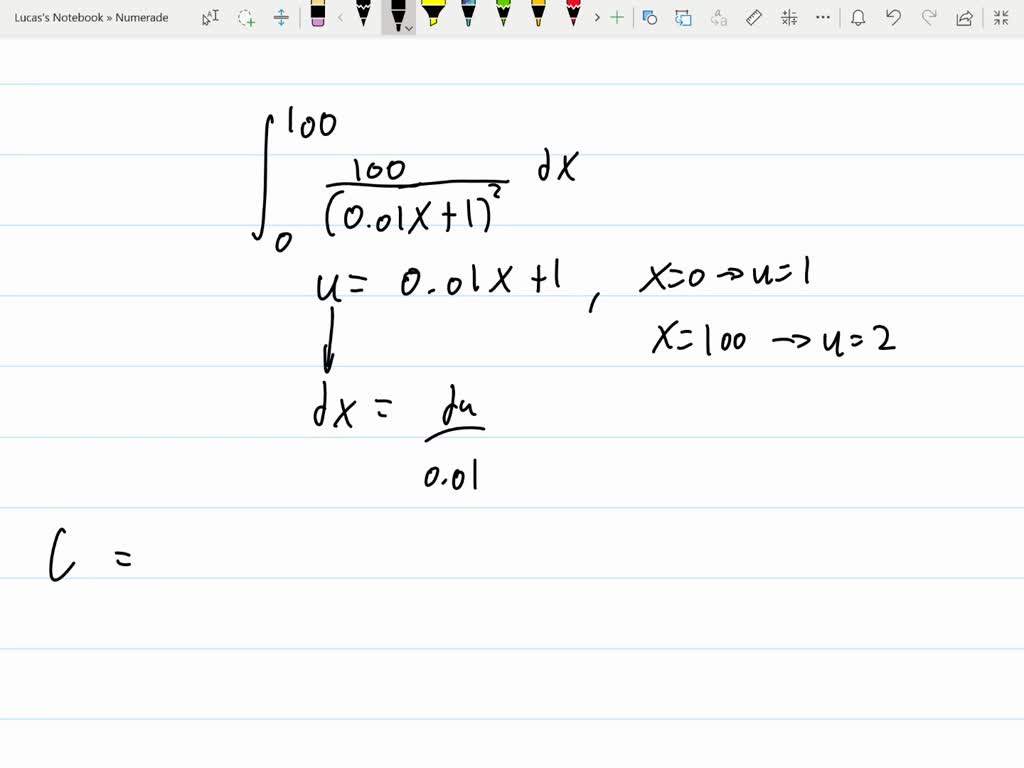 Lucas's Notebook » Numerade
∫₀¹⁰⁰ 100/(0.01x+1)² dx
u = 0.01x+1, x=0 → u=1
x=100 → u=2
dx = du/0.01
C =